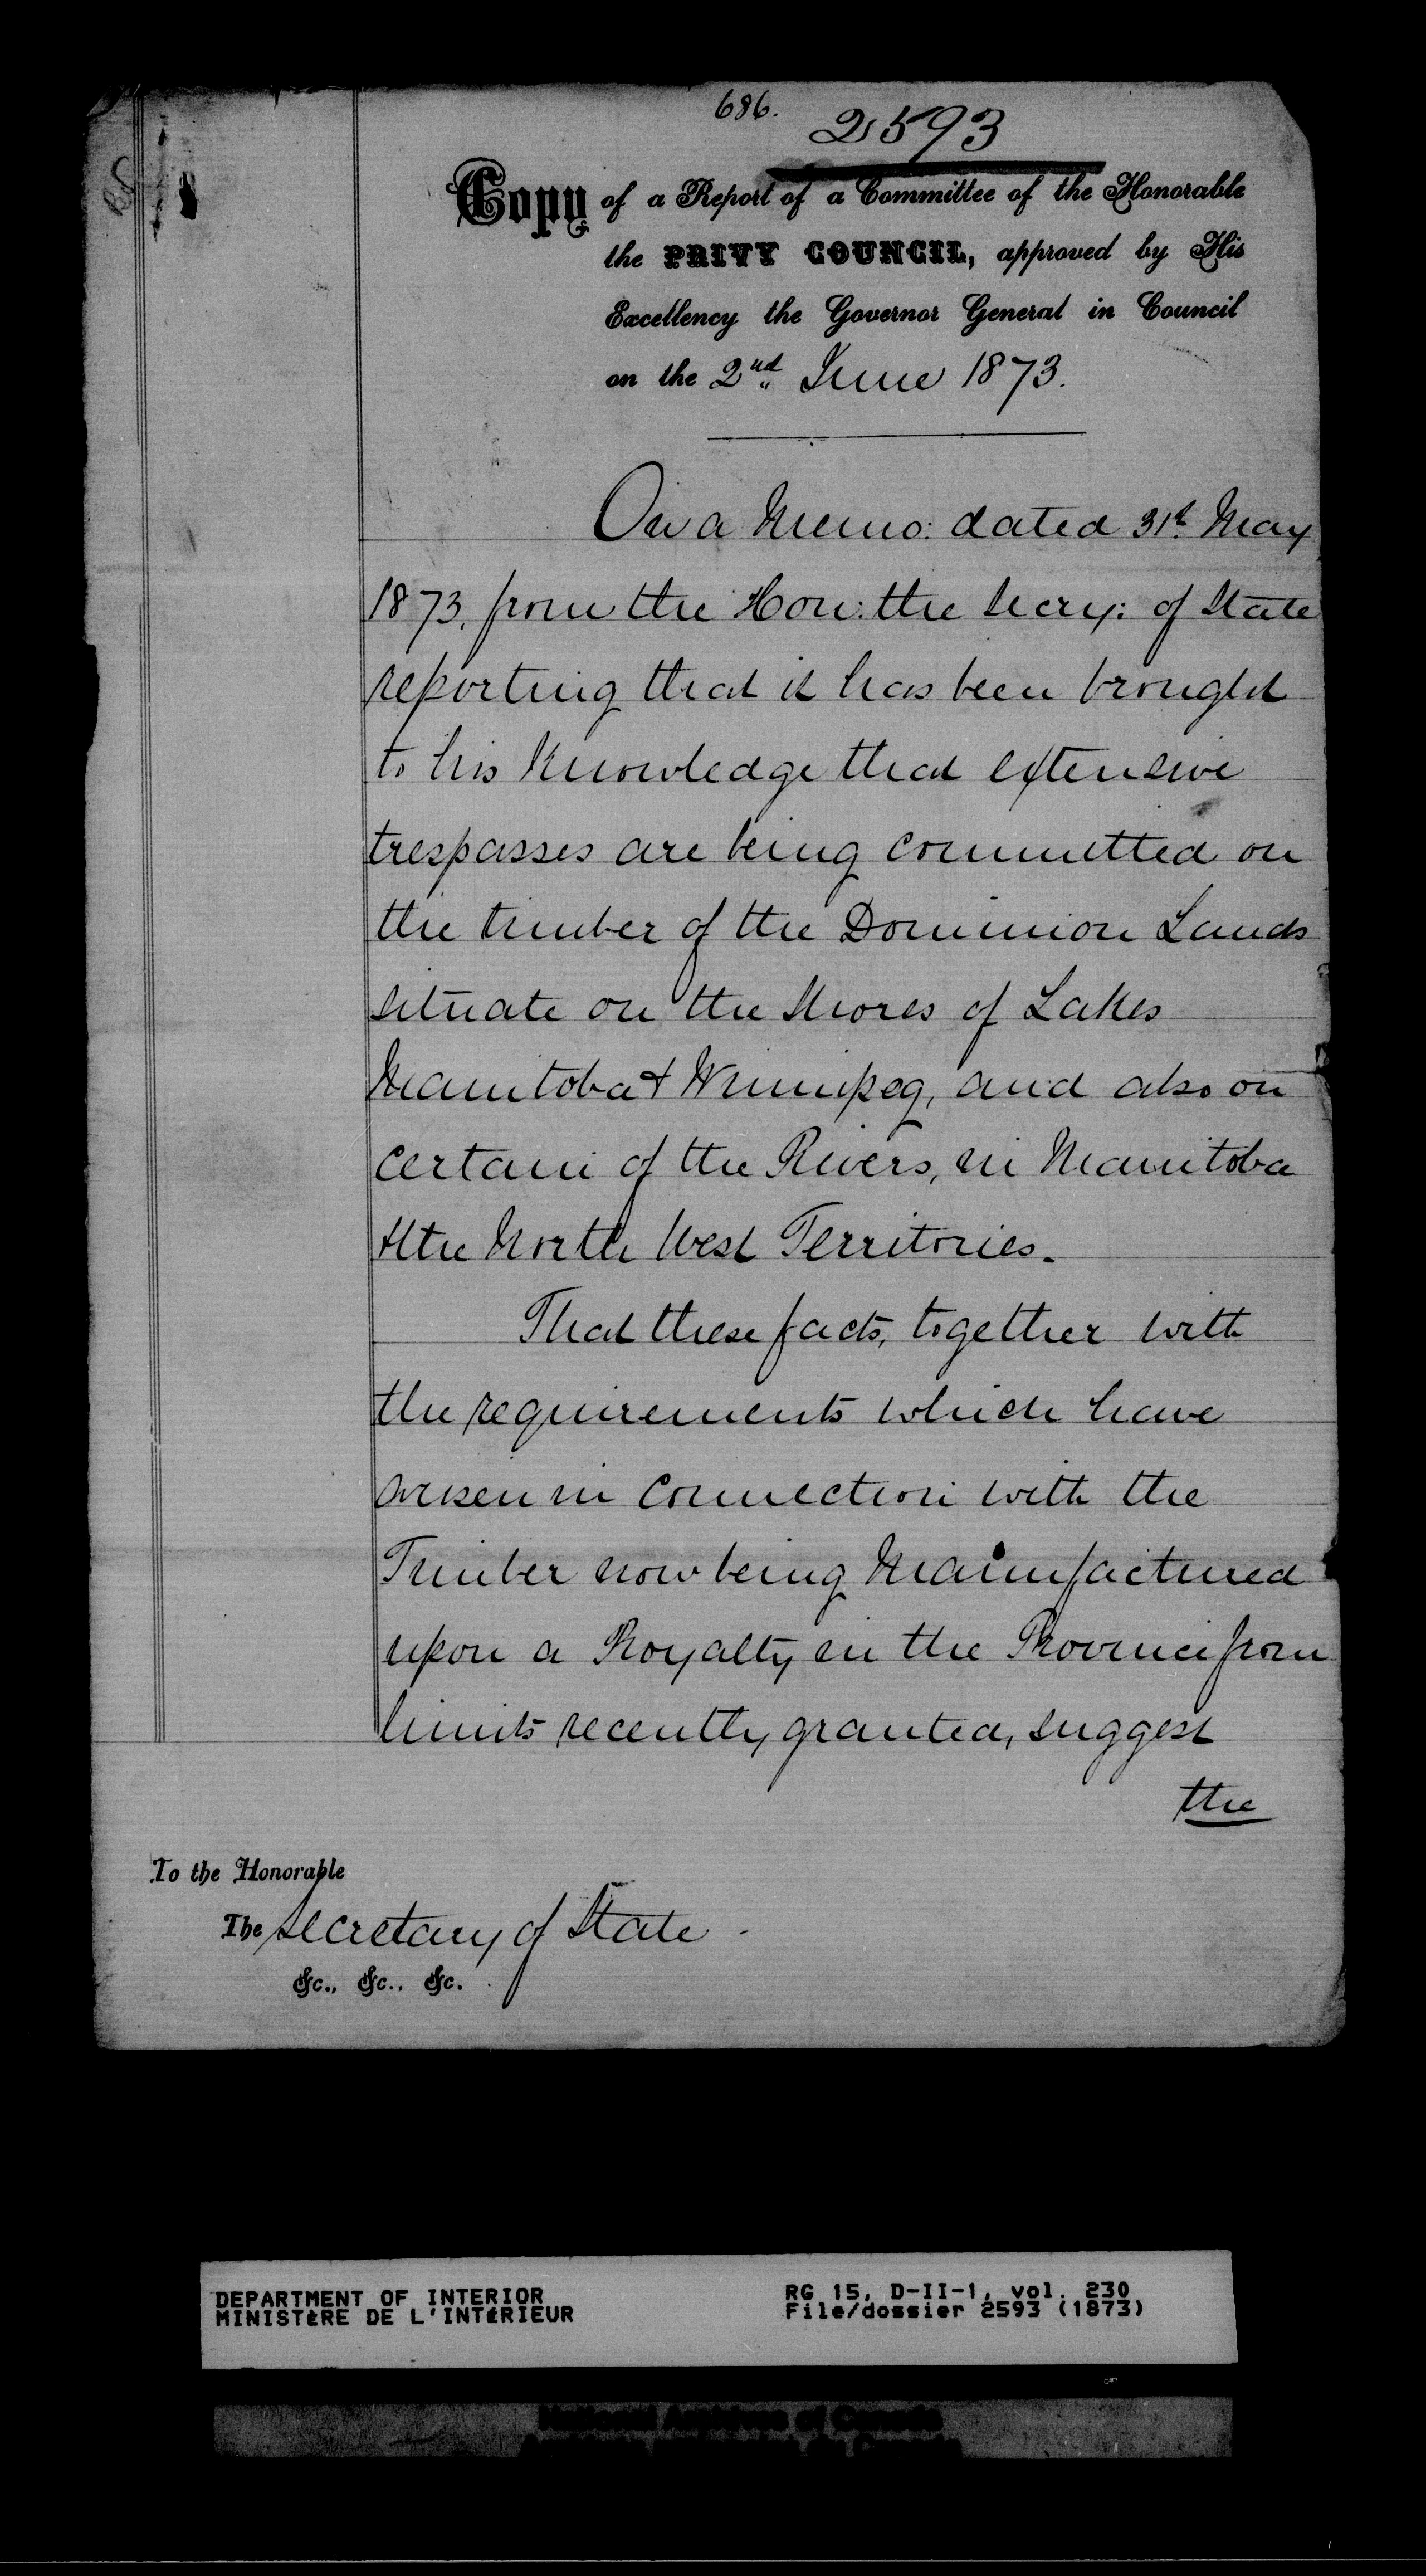 686.
2593
Copy of a Report of a Committee of the Honorable
the PRIVY COUNCIL, approved by His
Excellency the Governor General in Council
on the 2nd June 1873.
On a Memo: dated 31st May
1873, from the Hon: the Secry: of State
reporting that it has been brought
to his Knowledge that extensive
trespasses are being committed on
the timber of the Dominion Lands
situate on the Shores of Lakes
Manitoba & Winnipeg, and also on
certain of the Rivers, in Manitoba
& the North West Territories.
That these facts, together with
the requirements which have
arisen in connection with the
Timber now being Manufactured
upon a Royalty in the Province from
limits recently granted, suggest
the
To the Honorable
The Secretary of State
&c., &c., &c.
DEPARTMENT OF INTERIOR
MINISTÈRE DE L'INTÉRIEUR
RG 15, D-II-1, vol. 230
File/dossier 2593 (1873)